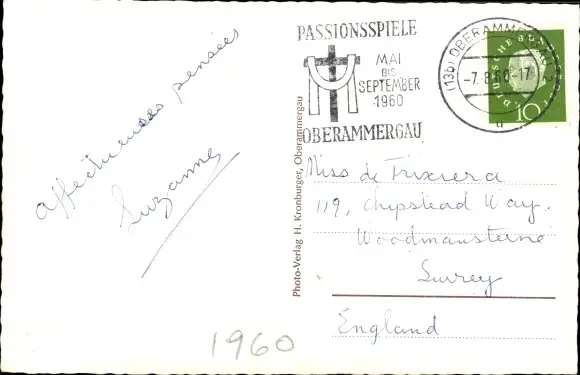 affectueuses pensées
Suzanne
1960
Photo-Verlag H. Kronburger, Oberammergau
PASSIONSSPIELE
MAI
BIS
SEPTEMBER
1960
OBERAMMERGAU
(13b) OBERAMMERGAU
-7.8.60-17
a
DEUTSCHE BUNDESPOST
10
Miss de Trixiera
119, Chipstead Way,
Woodmansterne
Surrey
England